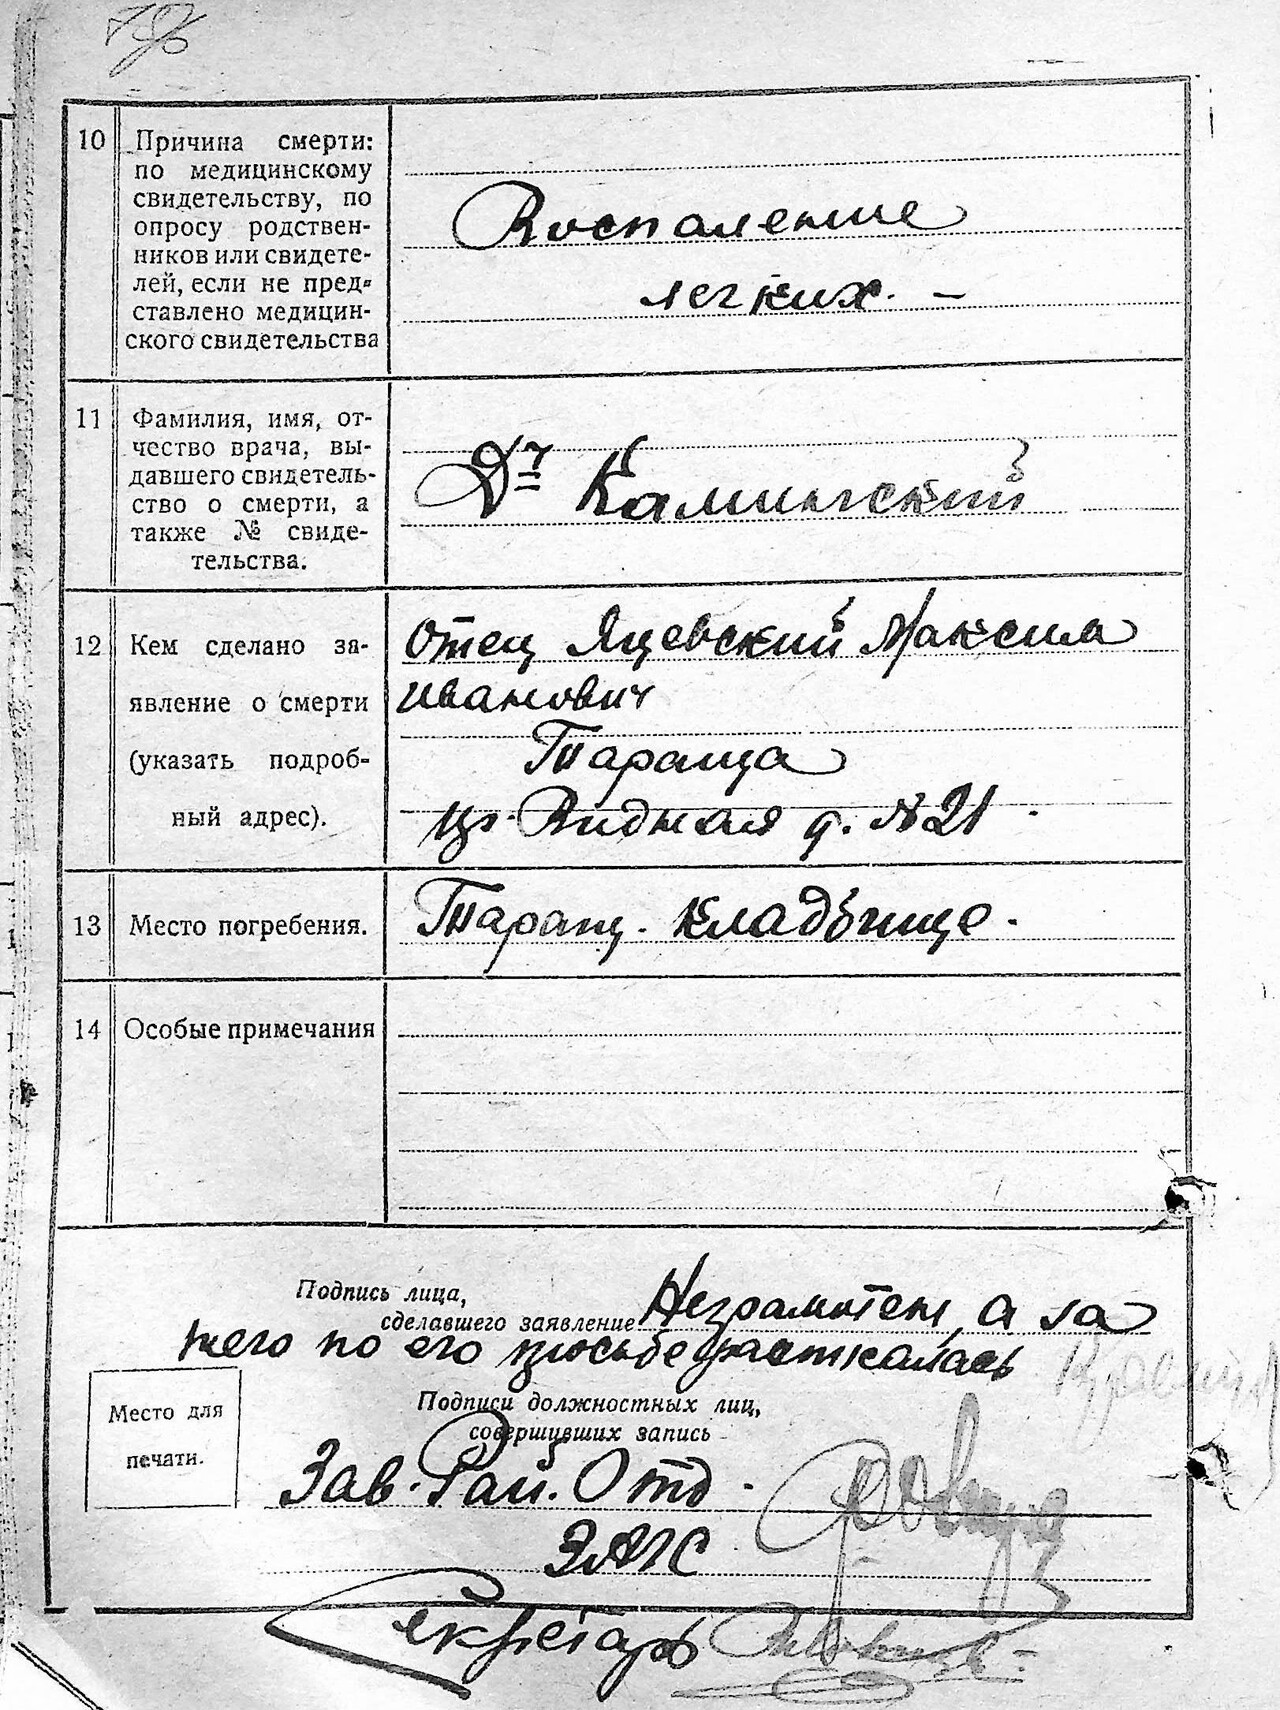 10 Причина смерти:
по медицинскому
свидетельству, по
опросу родствен-
ников или свидете-
лей, если не пред-
ставлено медицин-
ского свидетельства
Воспаление
легких. –
11 Фамилия, имя, от-
чество врача, вы-
давшего свидетель-
ство о смерти, а
также № свиде-
тельства.
Д-р Каминский
12 Кем сделано за-
явление о смерти
(указать подроб-
ный адрес).
Отец Яцевский Максим
Иванович
Тараща
ул. Видная д. №21
13 Место погребения.
Таращ. кладбище.
14 Особые примечания
Подпись лица,
сделавшего заявление Неграмотен, а за
него по его просьбе расписалась
Место для
печати.
Подписи должностных лиц,
совершивших запись
Зав. Рай. Отд.
ЗАГС
Секретарь